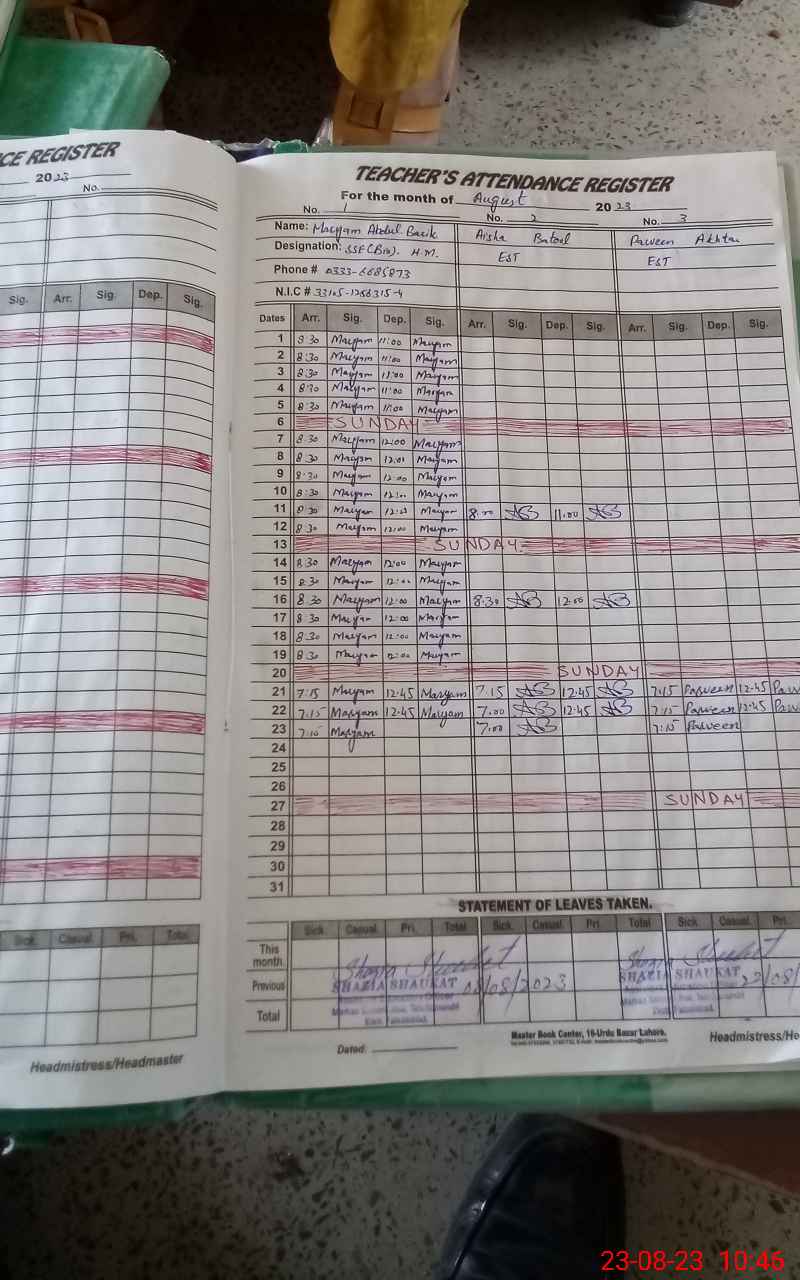 CE REGISTER
2023
No.
Sig. Arr. Sig. Dep. Sig.
Sick. Casual. Pri. Total
Headmistress/Headmaster
TEACHER'S ATTENDANCE REGISTER
For the month of August 2023
No. 1 No. 2 No. 3
Name: Maryam Abdul Aisha Batool Parveen Akhtar
Designation: SSE(Bio). H.M. EST EST
Phone # 0333-6685873
N.I.C #
Dates Arr. Sig. Dep. Sig. Arr. Sig. Dep. Sig. Arr. Sig. Dep. Sig.
1 8:30 Maryam 11:00 Maryam
2 8:30 Maryam 11:00 Maryam
3 8:30 Maryam 11:00 Maryam
4 8:30 Maryam 11:00 Maryam
5 8:30 Maryam 11:00 Maryam
6 SUNDAY
7 8:30 Maryam 12:00 Maryam
8 8:30 Maryam Maryam
9 8:30 Maryam 12:00 Maryam
10 8:30 Maryam Maryam
11 8:30 Maryam Maryam AB 11:00 AB
12 8:30 Maryam 12:00 Maryam
13 SUNDAY
14 8:30 Maryam 12:00 Maryam
15 8:30 Maryam 12:00 Maryam
16 8:30 Maryam 12:00 Maryam 8:30 AB 12:00 AB
17 8:30 Maryam 12:00 Maryam
18 8:30 Maryam 12:00 Maryam
19 8:30 Maryam 12:00 Maryam
20 SUNDAY
21 7:15 Maryam 12:45 Maryam 7:15 AB 12:45 AB 7:15 Parveen 12:45 Parv
22 7:15 Maryam 12:45 Maryam 7:00 AB 12:45 AB 7:15 Parveen 12:45 Parv
23 7:15 Maryam 7:00 AB 7:15 Parveen
24
25
26
27 SUNDAY
28
29
30
31
STATEMENT OF LEAVES TAKEN.
Sick. Casual. Pri. Total Sick. Casual. Pri. Total Sick. Casual. Pri.
This month.
Shazia Shaukat Shazia Shaukat
Previous SHAZIA SHAUKAT 08/08/2023 SHAZIA SHAUKAT 22/08/
Total
Master Book Center, 16-Urdu Bazar Lahore.
Dated: Headmistress/He
23-08-23 10:46